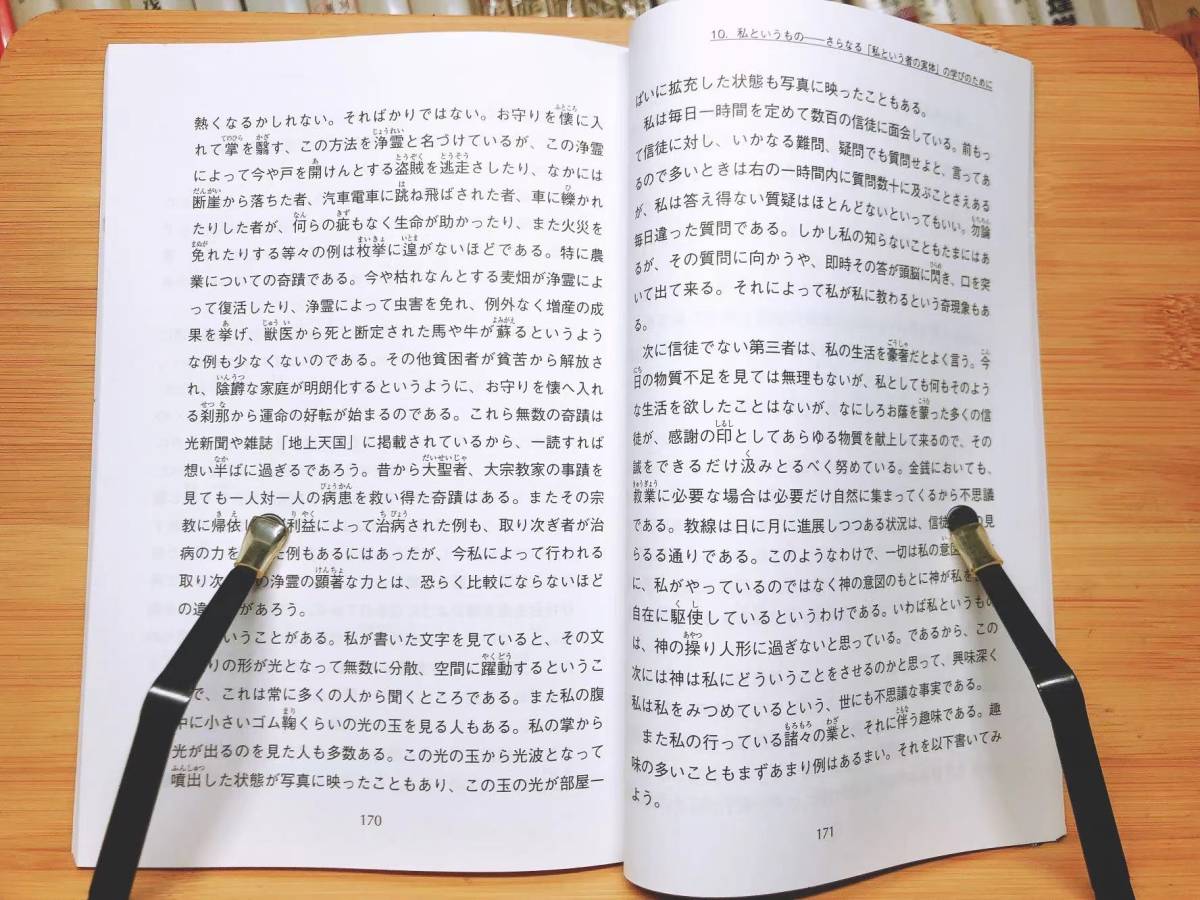 熱くなるかしれない。そればかりではない。お守りを懐に入
れて掌を翳す、この方法を浄霊と名づけているが、この浄霊
によって今や戸を開けんとする盗賊を逃走さしたり、なかには
断崖から落ちた者、汽車電車に跳ね飛ばされた者、車に轢かれ
たりした者が、何らの疵もなく生命が助かったり、また火災を
免れたりする等々の例は枚挙に遑がないほどである。特に農
業についての奇蹟である。今や枯れなんとする麦畑が浄霊によ
って復活したり、浄霊によって虫害を免れ、例外なく増産の成
果を挙げ、獣医から死と断定された馬や牛が蘇るというよう
な例も少なくないのである。その他貧困者が貧苦から解放さ
れ、陰鬱な家庭が明朗化するというように、お守りを懐へ入れ
る刹那から運命の好転が始まるのである。これら無数の奇蹟は
光新聞や雑誌「地上天国」に掲載されているから、一読すれば
想い半ばに過ぎるであろう。昔から大聖者、大宗教家の事蹟を
見ても一人対一人の病患を救い得た奇蹟はある。またその宗
教に帰依し 利益によって治病された例も、取り次ぎ者が治
病の力を 例もあるにはあったが、今私によって行われる
取り次 の浄霊の顕著な力とは、恐らく比較にならないほど
の違 があろう。
いうことがある。私が書いた文字を見ていると、その文
りの形が光となって無数に分散、空間に躍動するというこ
で、これは常に多くの人から聞くところである。また私の腹
中に小さいゴム鞠くらいの光の玉を見る人もある。私の掌から
光が出るのを見た人も多数ある。この光の玉から光波となって
噴出した状態が写真に映ったこともあり、この玉の光が部屋一
170
10. 私というもの――さらなる「私という者の実体」の学びのために
ぱいに拡充した状態も写真に映ったこともある。
私は毎日一時間を定めて数百の信徒に面会している。前もっ
て信徒に対し、いかなる難問、疑問でも質問せよと、言ってあ
るので多いときは右の一時間内に質問数十に及ぶことさえある
が、私は答え得ない質疑はほとんどないといってもいい。勿論
毎日違った質問である。しかし私の知らないこともたまにはあ
るが、その質問に向かうや、即時その答が頭脳に閃き、口を突
いて出て来る。それによって私が私に教わるという奇現象もあ
る。
次に信徒でない第三者は、私の生活を豪奢だとよく言う。今
日の物質不足を見ては無理もないが、私としても何もそのよう
な生活を欲したことはないが、なにしろお蔭を蒙った多くの信
徒が、感謝の印としてあらゆる物質を献上して来るので、その
誠をできるだけ汲みとるべく努めている。金銭においても、
救業に必要な場合は必要だけ自然に集まってくるから不思議
である。教線は日に月に進展しつつある状況は、信徒 の見
らるる通りである。このようなわけで、一切は私の意図
に、私がやっているのではなく神の意図のもとに神が私を
自在に駆使しているというわけである。いわば私というもの
は、神の操り人形に過ぎないと思っている。であるから、この
次には神は私にどういうことをさせるのかと思って、興味深く
私は私をみつめているという、世にも不思議な事実である。
また私の行っている諸々の業と、それに伴う趣味である。趣
味の多いこともまずあまり例はあるまい。それを以下書いてみ
よう。
171